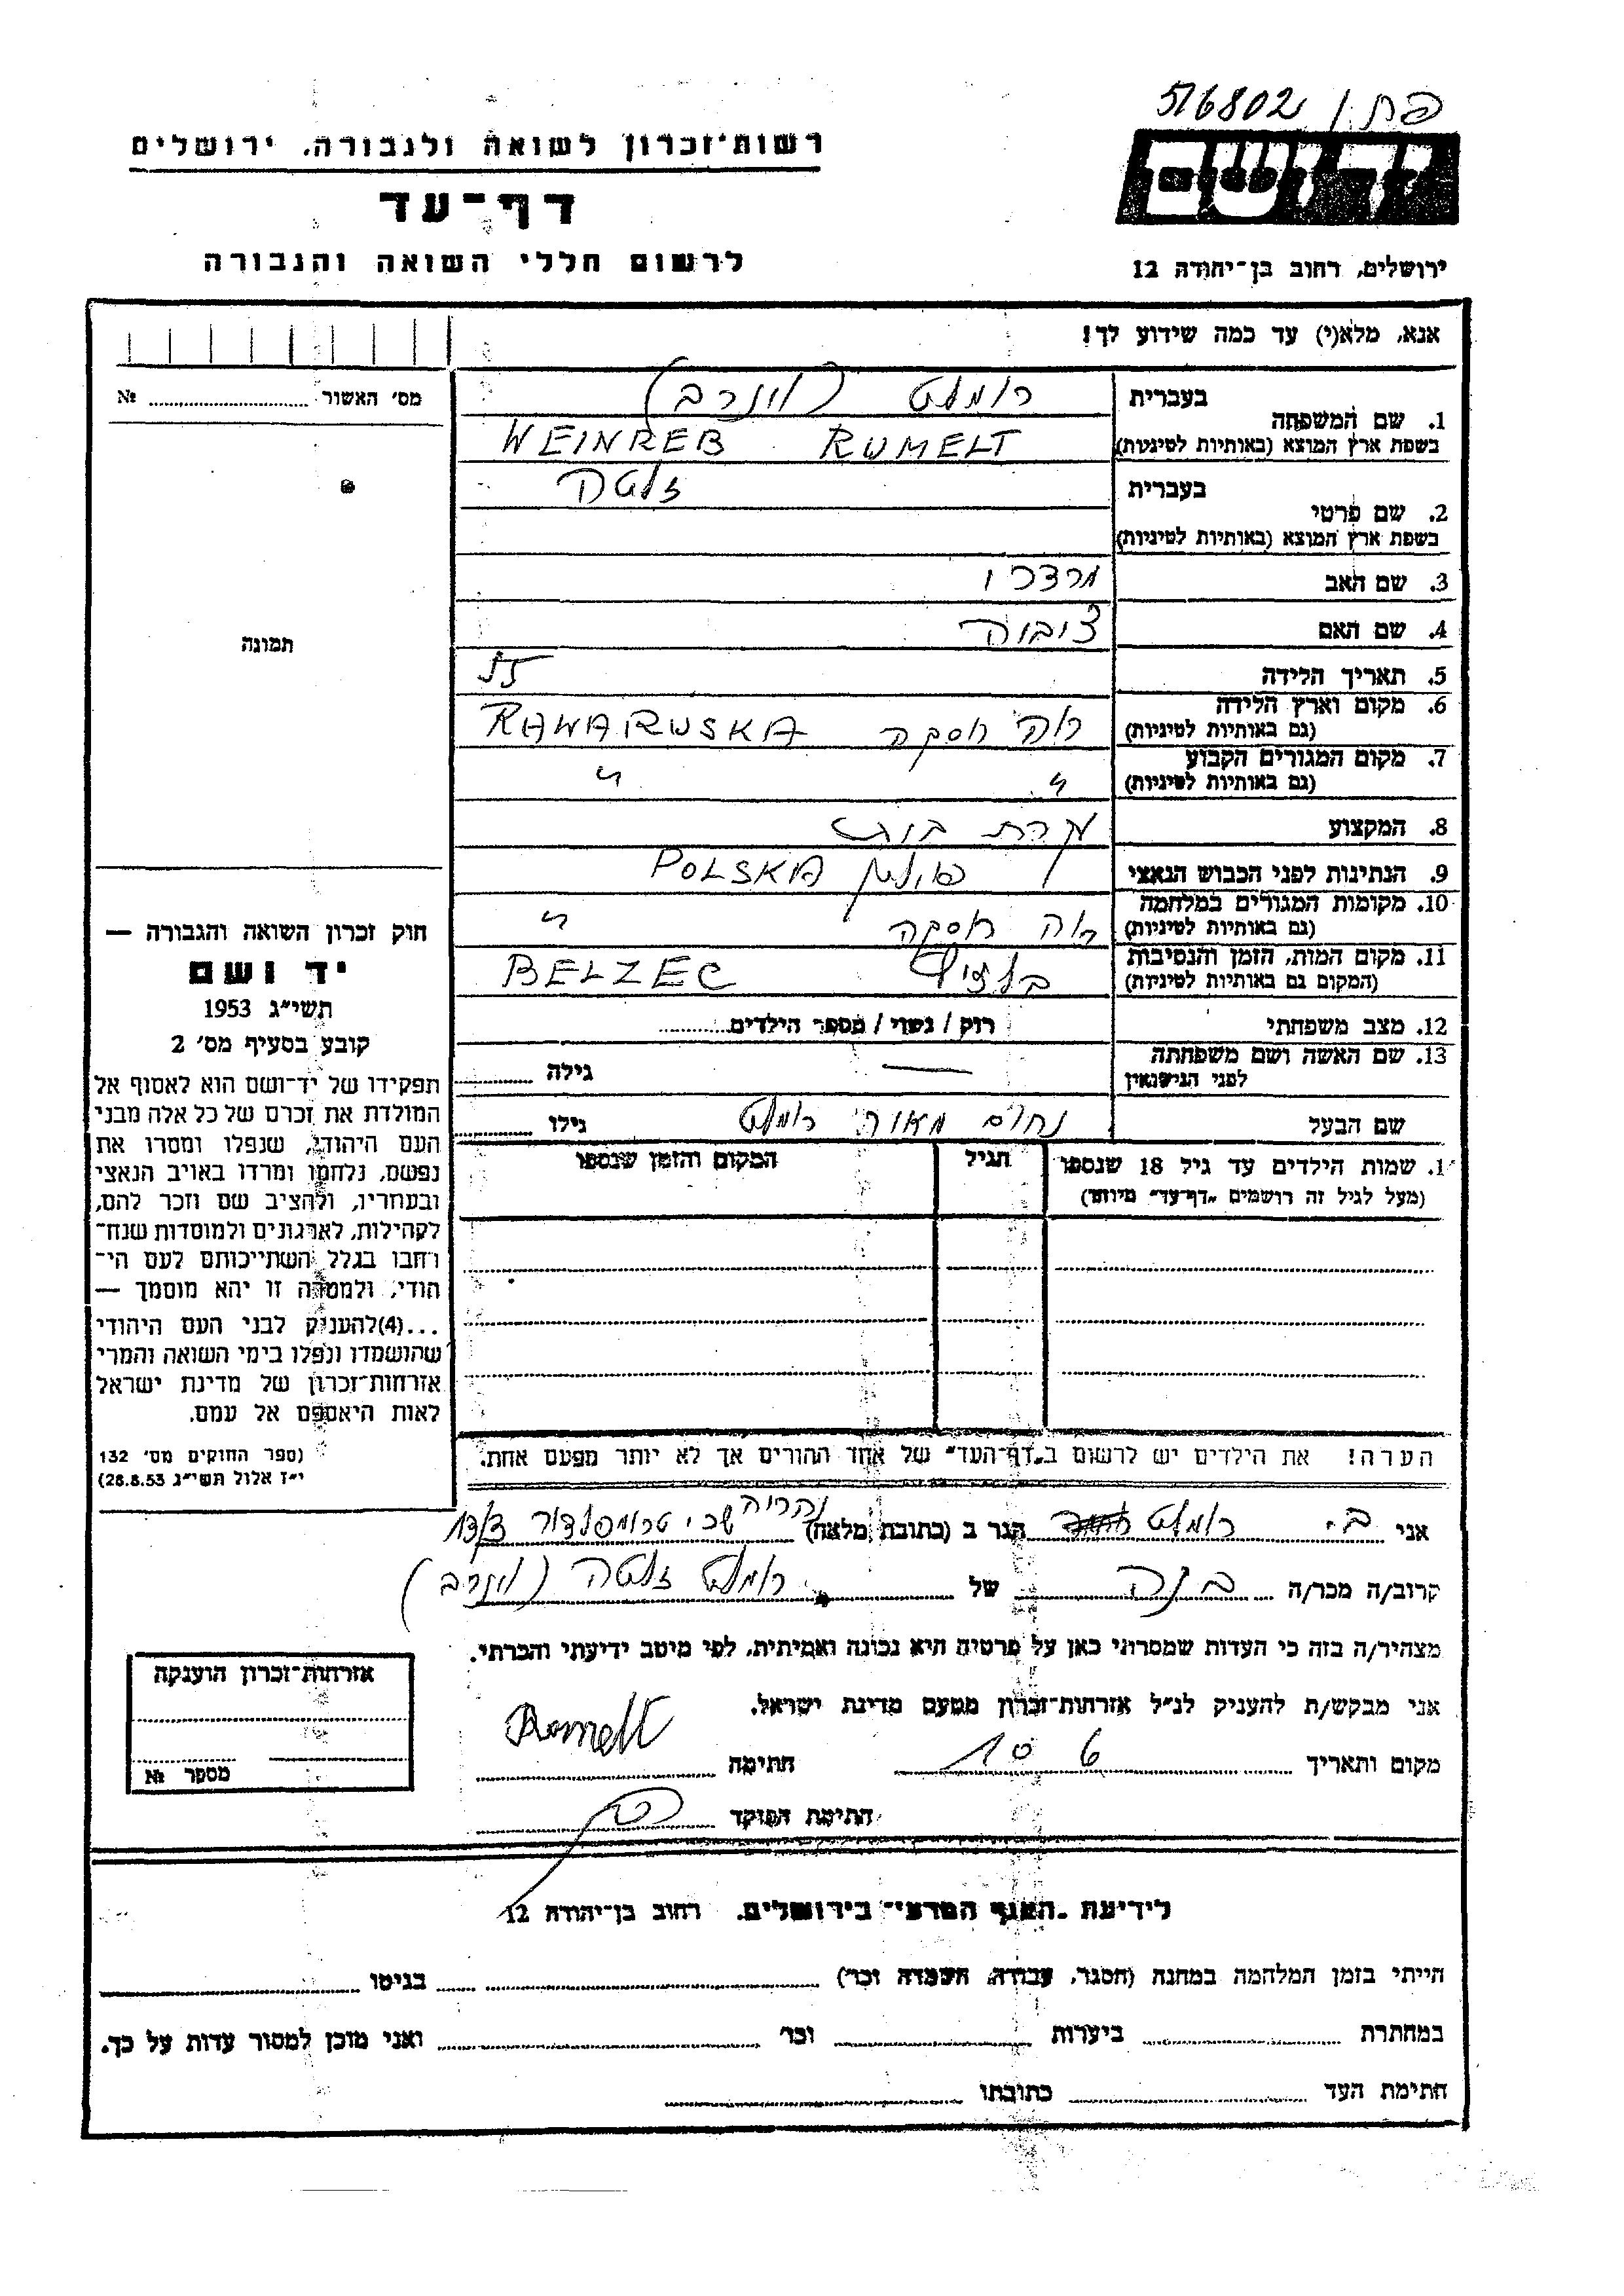 פתו 516802
רשות־זכרון לשואה ולגבורה, ירושלים
יד ושם
דף־עד
לרשום חללי השואה והגבורה
ירושלים, רחוב בן־יהודה 12
אנא, מלא(י) עד כמה שידוע לך!
מס׳ האשור № 
1. שם המשפחה
בעברית רומלט (וינרב)
בשפת ארץ המוצא (באותיות לטיניות) WEINREB RUMELT
2. שם פרטי
בעברית זלטה
בשפת ארץ המוצא (באותיות לטיניות)
3. שם האב מרדכי
4. שם האם ציביה
5. תאריך הלידה 55
6. מקום וארץ הלידה
(גם באותיות לטיניות) רוה רוסקה RAWARUSKA
7. מקום המגורים הקבוע
(גם באותיות לטיניות) " "
8. המקצוע עקרת בית
9. הנתינות לפני הכבוש הנאצי פולין POLSKA
10. מקומות המגורים במלחמה
(גם באותיות לטיניות) רוה רוסקה "
11. מקום המות, הזמן והנסיבות
(המקום גם באותיות לטיניות) BELZEC
12. מצב משפחתי רוק / נשוי / מספר הילדים
13. שם האשה ושם משפחתה
לפני הנישואין — גילה
שם הבעל נחום מאיר רומלט גילו
תמונה
חוק זכרון השואה והגבורה —
יד ושם
תשי״ג 1953
קובע בסעיף מס׳ 2
תפקידו של יד־ושם הוא לאסוף אל
המולדת את זכרם של כל אלה מבני
העם היהודי, שנפלו ומסרו את
נפשם, נלחמו ומרדו באויב הנאצי
ובעוזריו, ולהציב שם וזכר להם,
לקהילות, לארגונים ולמוסדות שנח־
רחבו בגלל השתייכותם לעם הי־
הודי, ולמטרה זו יהא מוסמך —
...(4)להעניק לבני העם היהודי
שהושמדו ונפלו בימי השואה והמרי
אזרחות־זכרון של מדינת ישראל
לאות היאספם אל עמם.
(ספר החוקים מס׳ 132
י״ז אלול תשי״ג 28.8.53)
1. שמות הילדים עד גיל 18 שנספו
(מעל לגיל זה רושמים „דף־עד״ מיוחד)
הגיל
המקום והזמן שנספו
הערה! את הילדים יש לרשום ב„דף־העד״ של אחד ההורים אך לא יותר מפעם אחת.
אני ב. רומלט הגר ב (כתובת מלאה) נהריה שכ׳ טרומפלדור
קרוב/ה מכר/ה בנה של רומלט זלטה (וינרב)
מצהיר/ה בזה כי העדות שמסרתי כאן על פרטיה היא נכונה ואמיתית, לפי מיטב ידיעתי והכרתי.
אני מבקש/ת להעניק לנ״ל אזרחות־זכרון מטעם מדינת ישראל.
מקום ותאריך 10 6 חתימה Romelt
חתימת הפוקד
אזרחות־זכרון הוענקה
מספר №
לידיעת „האגף המדעי״ בירושלים, רחוב בן־יהודה 12
הייתי בזמן המלחמה במחנה (הסגר, עבודה, השמדה וכו׳) בגיטו
במחתרת ביערות וכו׳ ואני מוכן למסור עדות על כך.
חתימת העד כתובתו